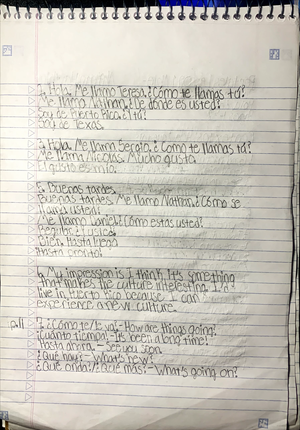 1. Hola. Me llamo Teresa. ¿Cómo te llamas tú?
Me llamo Nathan. ¿De dónde es usted?
Soy de Puerto Rico. ¿Y tú?
Soy de Texas.
Hola. Me llamo Sergio. ¿Cómo te llamas tú?
Me llamo Nicolas. Mucho gusto.
El gusto es mío.
5. Buenas tardes.
Buenas tardes. Me llamo Nathan. ¿Cómo se
llama usted?
Me llamo Daniel. ¿Cómo estas usted?
Regular. ¿Y usted?
Bien. Hasta luego
Hasta pronto!
6. My impression is I think it's something
that makes the culture interesting. I'd
live in Puerto Rico because I can
experience a new culture.
p.11 7. ¿Cómo te/le va? - How are things going?
¡Cuánto tiempo! - It's been a long time!
Hasta ahora. - See you soon.
¿Qué hay? - What's new?
¿Qué onda?/¿Qué más? - What's going on?